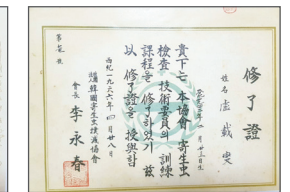 修了證
姓名 盧載奭
貴下는 本協會 寄生虫
檢査 技術要員의 訓練
課程을 修了하였기 玆
以 修了證을 授與함
西紀一九六六年 四月廿八日
社團法人 韓國寄生虫撲滅協會
會長 李永春